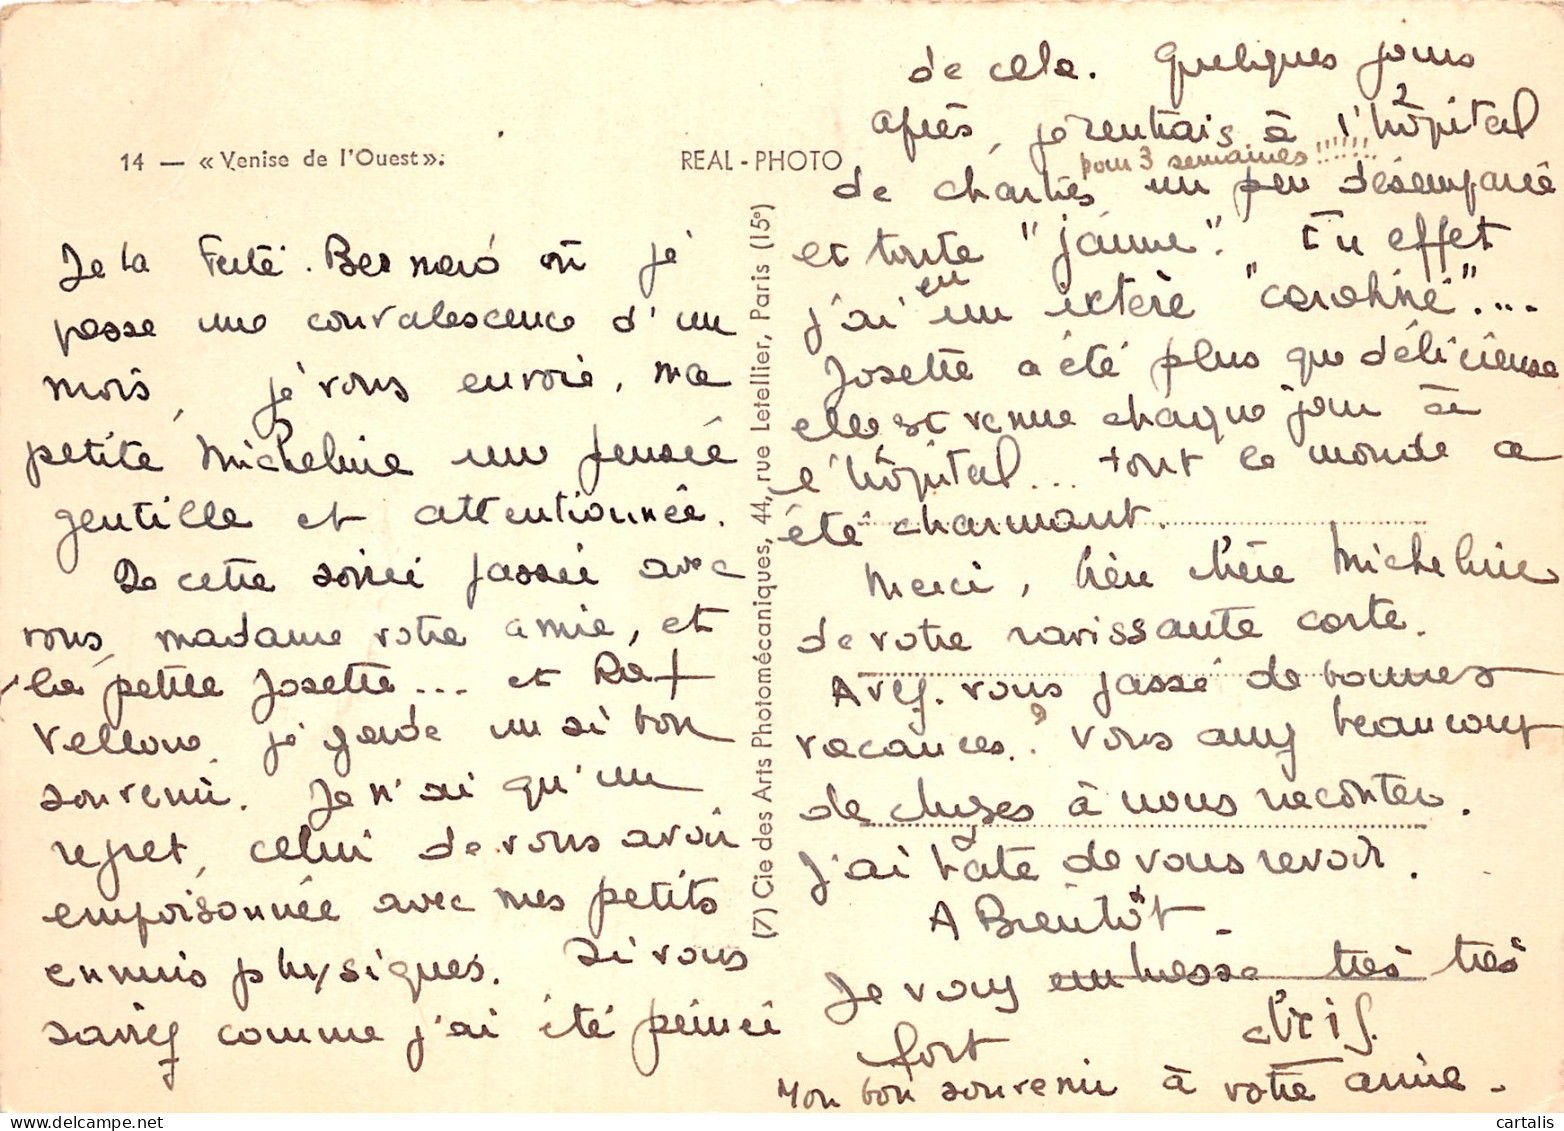 14 — « Venise de l'Ouest ».
REAL - PHOTO
De la Ferté. Bernard où je
passe une convalescence d'un
mois, je vous envoie, ma
petite Micheline une pensée
gentille et attentionnée.
De cette soirée passée avec
vous, madame votre amie, et
la petite Josette... et
je garde un si bon
souvenir. Je n'ai qu'un
regret, celui de vous avoir
empoisonnée avec mes petits
ennuis physiques. Si vous
saviez comme j'ai été peinée
(7) Cie des Arts Photomécaniques, 44, rue Letellier, Paris (15e)
de cela. Quelques jours
après, je rentrais à l'hôpital
pour 3 semaines !!!!!!
de chartres un peu désemparée
et toute "jaune". En effet
j'ai eu un ictère "carabiné"....
Josette a été plus que délicieuse
elle est venue chaque jour à
l'hôpital... tout le monde a
été charmant.
Merci, bien chère Micheline
de votre ravissante carte.
Avez. vous passé de bonnes
vacances.? Vous avez beaucoup
de choses à nous raconter.
J'ai hâte de vous revoir.
A Bientôt.
Je vous embrasse très très
fort
Mon bon souvenir à votre amie.